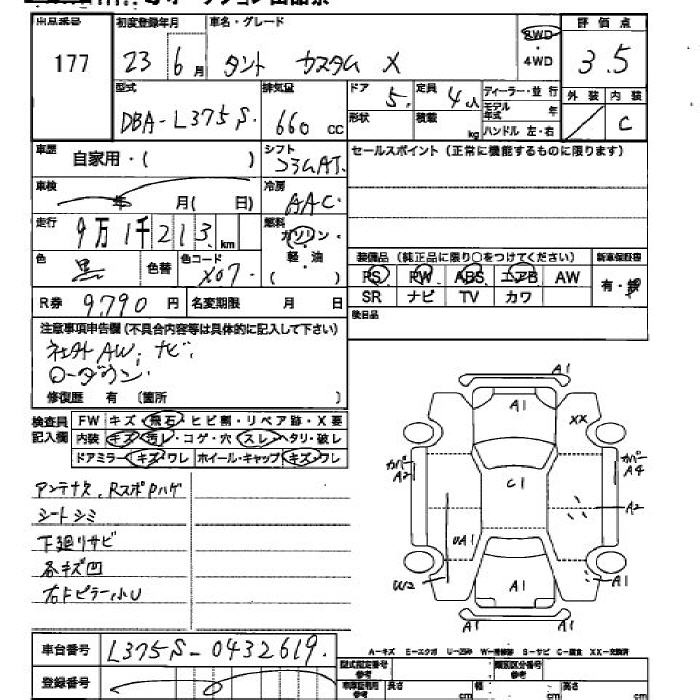 出品番号 初度登録年月 車名・グレード 2WD 評価点
177 23 6月 タント カスタム X ・4WD 3.5
型式 排気量 ドア 5. 定員 4人 ディーラー・並行 外装 内装
DBA-L375S. 660cc 形状 積載 kg モデル年式 年 C
ハンドル 左・右
車歴 自家用・( ) シフト コラムAT. セールスポイント(正常に機能するものに限ります)
車検 年 月( 日) 冷房 AAC.
走行 9万1千213km 燃料 ガソリン・軽・油 ( )
色 黒 色替 色コード X07. 装備品(純正品に限り○をつけてください) 新車保証書
PS PW ABS エアB AW 有・無
SR ナビ TV カワ
R券 9,790円 名変期限 月 日
後日品
注意事項申告欄(不具合内容等は具体的に記入して下さい)
社外AW, ナビ,
ローダウン.
修復歴 有 〔箇所 〕
検査員記入欄 FW キズ・飛石・ヒビ割・リペア跡・X要
内装 キズ・汚レ・コゲ・穴・スレ・ヘタリ・破レ
ドアミラー・キズ・ワレ ホイール・キャップ・キズ・ワレ
アンテナ欠, Rスポ Pハゲ
シートシミ
下廻リサビ
各キズ凹
右Fピラー小U
A1
A1
XX
カバーA2 カバーA4
C1
A2
UA1
W2 A1 A1
A1
A-キズ E-エクボ U-凹み W-補修跡 S-サビ C-腐食 XX-交換済
車台番号 L375S-0432619.
登録番号
型式指定番号 参考 類別区分番号 参考
車庫証明用 参考 長さ cm 幅 cm 高さ cm